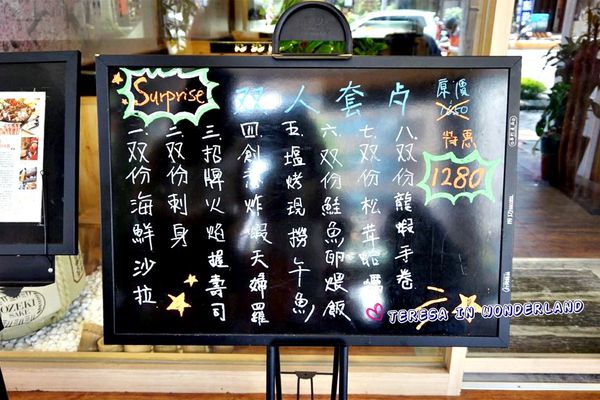 Surprise
双人套卡
原價
1650
特惠
1280
一.双份海鮮沙拉
二.双份刺身
三.招牌火焰握壽司
四.創意炸蝦天婦羅
五.塩烤現撈午魚
六.双份鮭魚卵煨飯
七.双份松茸蛤蠣
八.双份龍蝦手卷
TERESA IN WONDERLAND